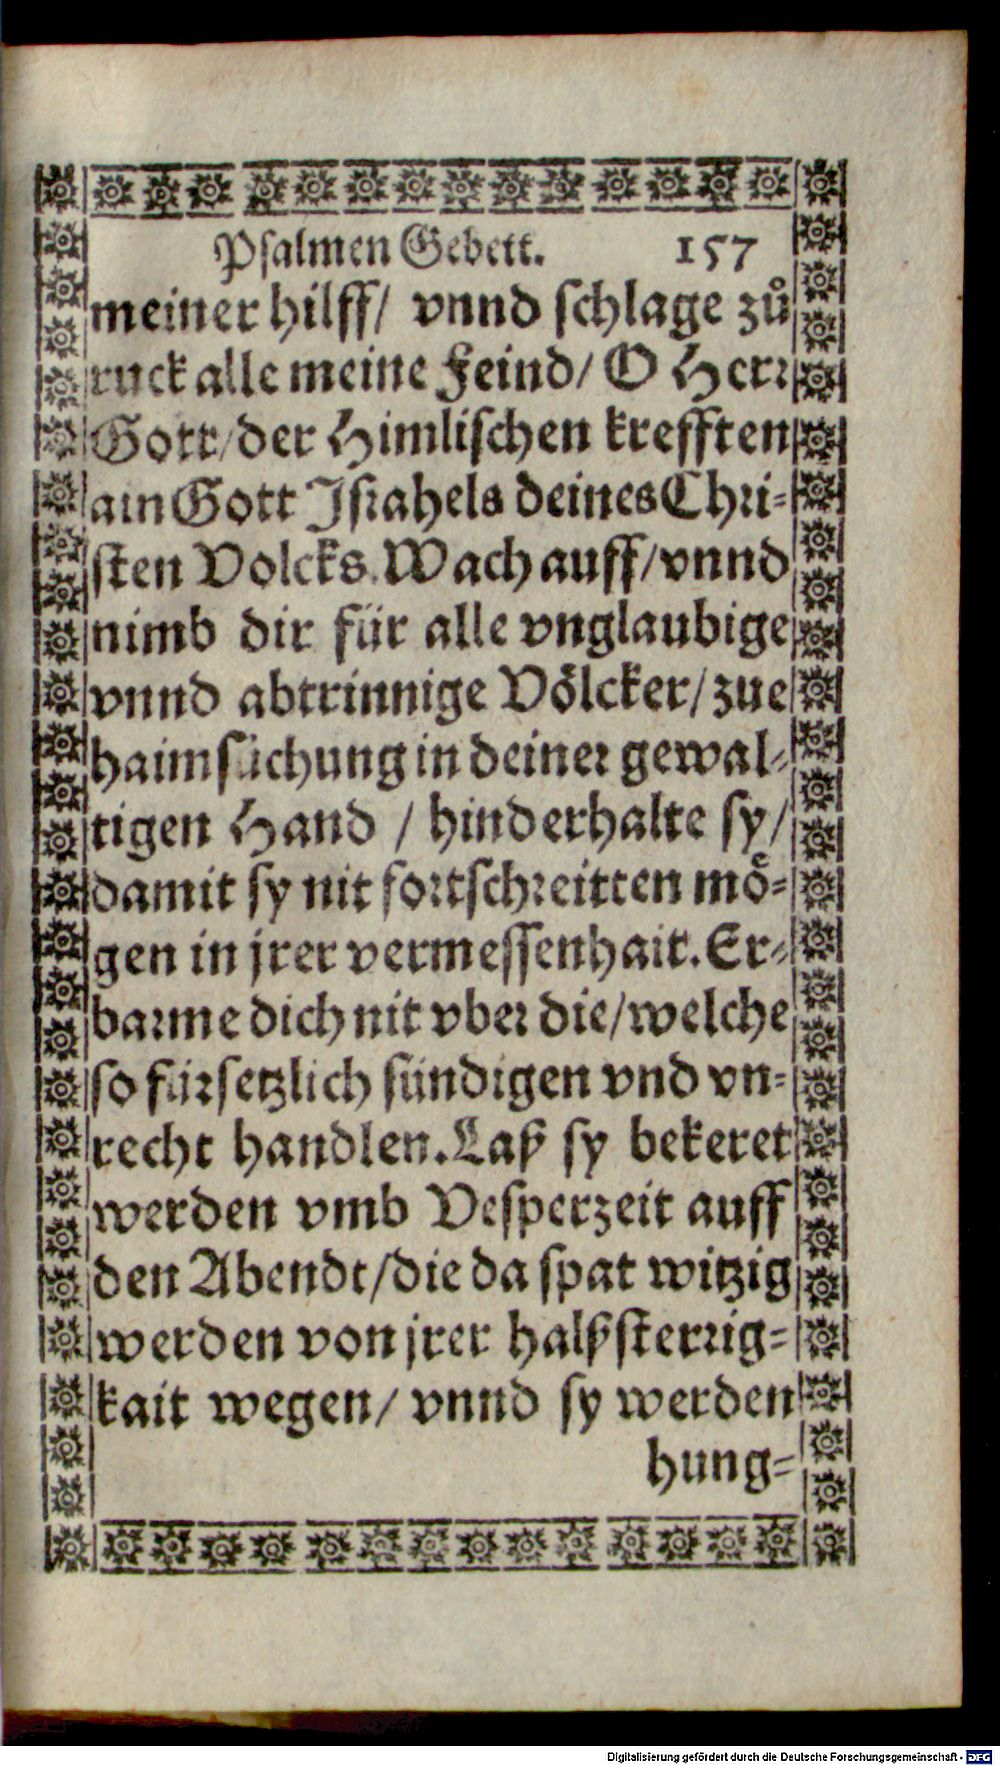 Psalmen Gebett. 157
meiner hilff/ vnnd schlage zů
ruck alle meine Feind/ O Herr
Gott/ der Himlischen krefften
ain Gott Israhels deines Chri-
sten Volcks. Wach auff/ vnnd
nimb dir für alle vnglaubige
vnnd abtrinnige Völcker/ zue
haimsůchung in deiner gewal-
tigen Hand / hinderhalte sy/
damit sy nit fortschreitten mö-
gen in jrer vermessenhait. Er-
barme dich nit vber die/ welche
so fürsetzlich sündigen vnd vn-
recht handlen. Laß sy bekeret
werden vmb Vesperzeit auff
den Abendt/ die da spat witzig
werden von jrer halßsterrig-
kait wegen/ vnnd sy werden
hung-
Digitalisierung gefördert durch die Deutsche Forschungsgemeinschaft - DFG